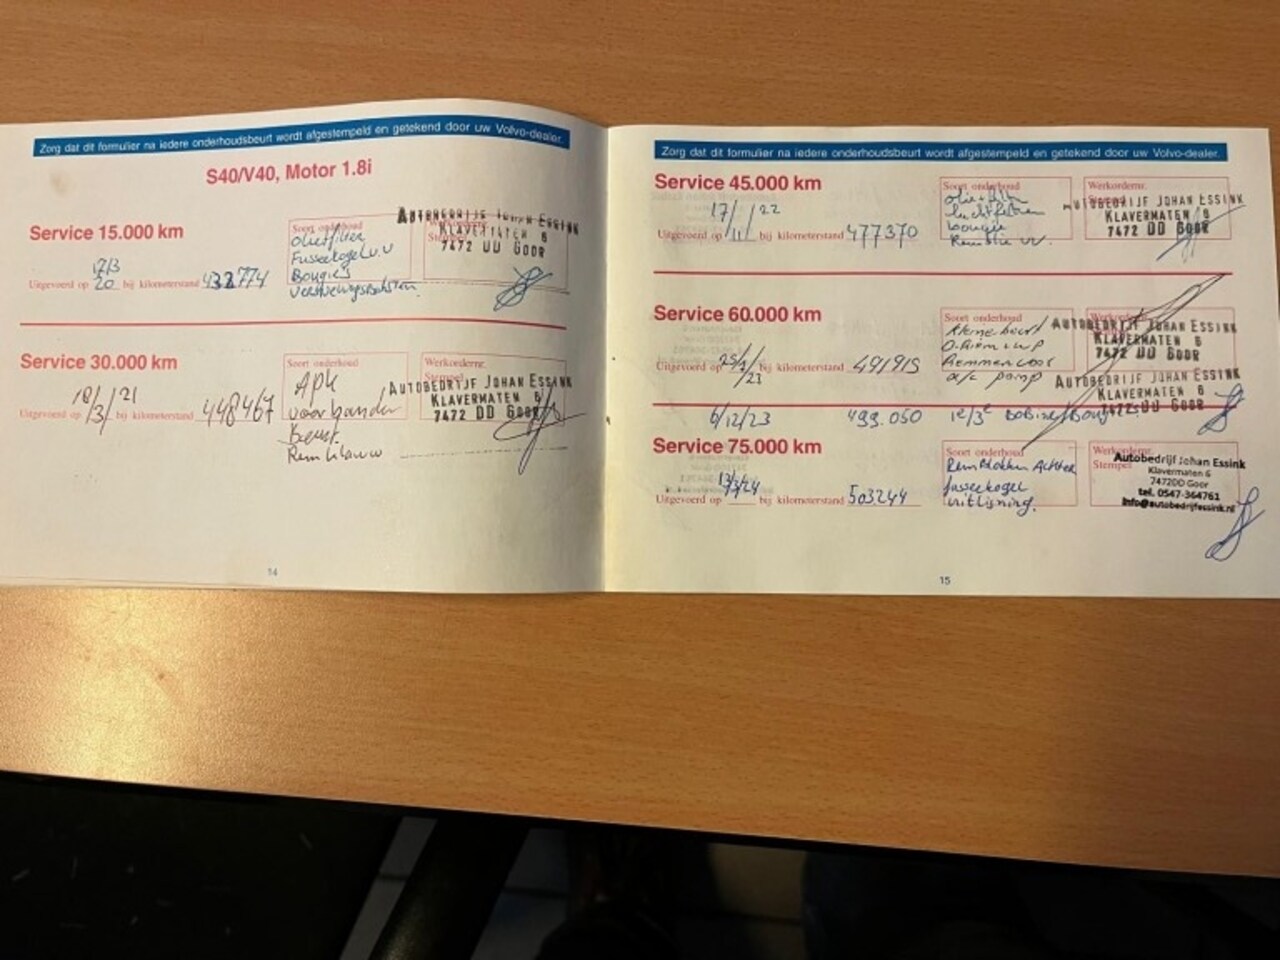 Zorg dat dit formulier na iedere onderhoudsbeurt wordt afgestempeld en getekend door uw Volvo-dealer.
S40/V40, Motor 1.8i
Service 15.000 km
Soort onderhoud
oliefilter
Fuseekogel v.v
Bougie's
17/3
20
Uitgevoerd op bij kilometerstand 432774
AUTOBEDRIJF ESSINK
KLAVERMATEN 6
7472 DD GOOR
Service 30.000 km
Soort onderhoud
Apk
voorbanden
Beurt
18/3/21
Uitgevoerd op bij kilometerstand 448467
Werkordernr.
Stempel
AUTOBEDRIJF JOHAN ESSINK
KLAVERMATEN 6
7472 DD GOOR
14
Zorg dat dit formulier na iedere onderhoudsbeurt wordt afgestempeld en getekend door uw Volvo-dealer.
Service 45.000 km
Soort onderhoud
luchtfilter
bougie
17/11/22
Uitgevoerd op bij kilometerstand 477370
Werkordernr.
AUTOBEDRIJF JOHAN ESSINK
KLAVERMATEN 6
7472 DD GOOR
Service 60.000 km
Soort onderhoud
Remmen voor
a/c pomp
Uitgevoerd op bij kilometerstand 491915
AUTOBEDRIJF JOHAN ESSINK
KLAVERMATEN 6
7472 DD GOOR
AUTOBEDRIJF JOHAN ESSINK
KLAVERMATEN 6
7472 DD GOOR
6/12/23 499.050
Service 75.000 km
Soort onderhoud
Remblokken Achter
fuseekogel
uitlijning.
13/3/24
Uitgevoerd op bij kilometerstand 503244
Werkordernr.
Stempel
Autobedrijf Johan Essink
Klavermaten 6
7472DD Goor
tel. 0547-364761
info@autobedrijfessink.nl
15